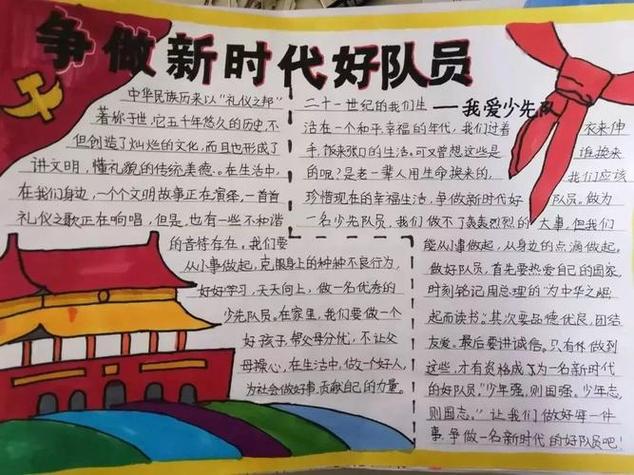 争做新时代好队员
——我爱少先队
中华民族历来以“礼仪之邦”
著称于世,它五千年悠久的历史,不
但创造了灿烂的文化,而且也形成了
讲文明,懂礼貌的传统美德。在生活中,
在我们身边,一个个文明故事正在演绎,一首首
礼仪之歌正在响唱,但是,也有一些不和谐
的音符存在。我们要
从小事做起,克服身上的种种不良行为,
好好学习,天天向上,做一名优秀的
少先队员。在家里,我们要做一个
好孩子,帮父母分忧,不让父
母操心,在生活中,做一个好人,
为社会做好事,贡献自己的力量。
二十一世纪的我们生
活在一个和平幸福的年代,我们过着 衣来伸
手,饭来张口的生活。可又曾想这些是 谁换来
的呢?是老一辈人用生命换来的, 我们应该
珍惜现在的幸福生活,争做新时代好 队员。做为
一名少先队员,我们做不了轰轰烈烈的 大事,但我们
能从小事做起,从身边的点滴做起。
做好队员,首先要热爱自己的国家,
时刻铭记周总理的“为中华之崛
起而读书”。其次要品德优良,团结
友爱。最后要讲诚信。只有休做到
这些,才有资格成了为一名新时代
的好队员。“少年强,则国强。少年志,
则国志。”让我们做好每一件
事,争做一名新时代的好队员吧!